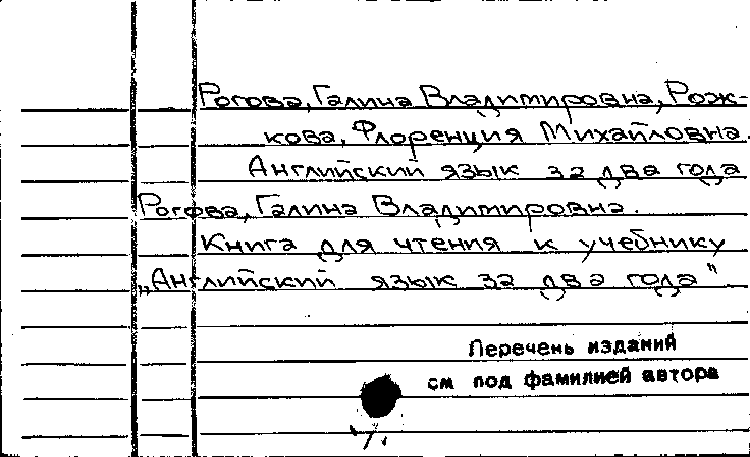 Рогова, Галина Владимировна, Рож-
кова, Флоренция Михайловна.
Английский язык за два года
Рогова, Галина Владимировна.
Книга для чтения к учебнику
„Английский язык за два года"
Перечень изданий
см под фамилией автора